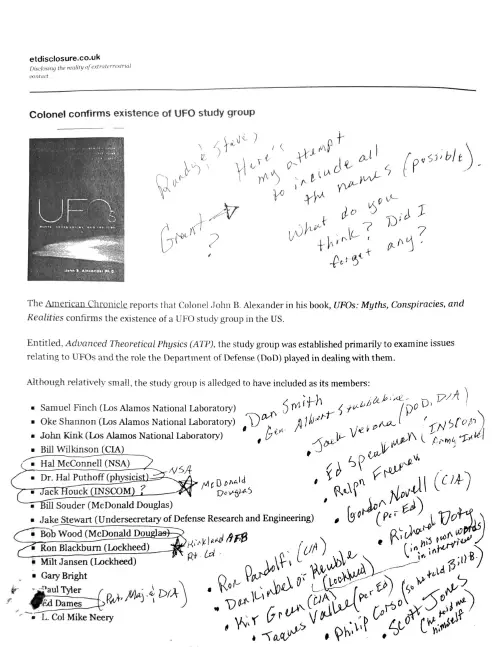 etdisclosure.co.uk
Disclosing the reality of extraterrestrial
contact
Colonel confirms existence of UFO study group
Randy & Steve,
Here's
my attempt
to include all
the names (possible).
Grant →
?
What do you
think? Did I
forget any?
UFOs
MYTHS, CONSPIRACIES, AND REALITIES
John B. Alexander Ph.D.
The American Chronicle reports that Colonel John B. Alexander in his book, UFOs: Myths, Conspiracies, and
Realities confirms the existence of a UFO study group in the US.
Entitled, Advanced Theoretical Physics (ATP), the study group was established primarily to examine issues
relating to UFOs and the role the Department of Defense (DoD) played in dealing with them.
Although relatively small, the study group is alledged to have included as its members:
▪ Samuel Finch (Los Alamos National Laboratory)
▪ Oke Shannon (Los Alamos National Laboratory)
▪ John Kink (Los Alamos National Laboratory)
▪ Bill Wilkinson (CIA)
▪ Hal McConnell (NSA)
▪ Dr. Hal Puthoff (physicist) NSA
▪ Jack Houck (INSCOM) ? McDonald
Douglas
▪ Bill Souder (McDonald Douglas)
▪ Jake Stewart (Undersecretary of Defense Research and Engineering)
▪ Bob Wood (McDonald Douglas)
▪ Ron Blackburn (Lockheed) Kirkland AFB
Rt. Ld.
▪ Milt Jansen (Lockheed)
▪ Gary Bright
▪ Paul Tyler
Ed Dames (Ret. Maj. & DIA)
▪ L. Col Mike Neery
• Dan Smith
• Gen Albert Stubblebine
• Jack Verona (DOD, DIA)
• Ed Speakman (INSCOM)
Army Intel
• Ralph Freeman
• Gordon Novell (CIA)
(Per Ed)
• Richard Doty
(in his own words
in interview)
• Ron Pandolfi (CIA)
• Dan Kinbel or Reuble
(Lockheed)
• Kit Green (CIA)
• Jaques Vallee (per Ed)
• Philip Corso (so he told Bill B.)
• Scott Jones
(he told me
himself)